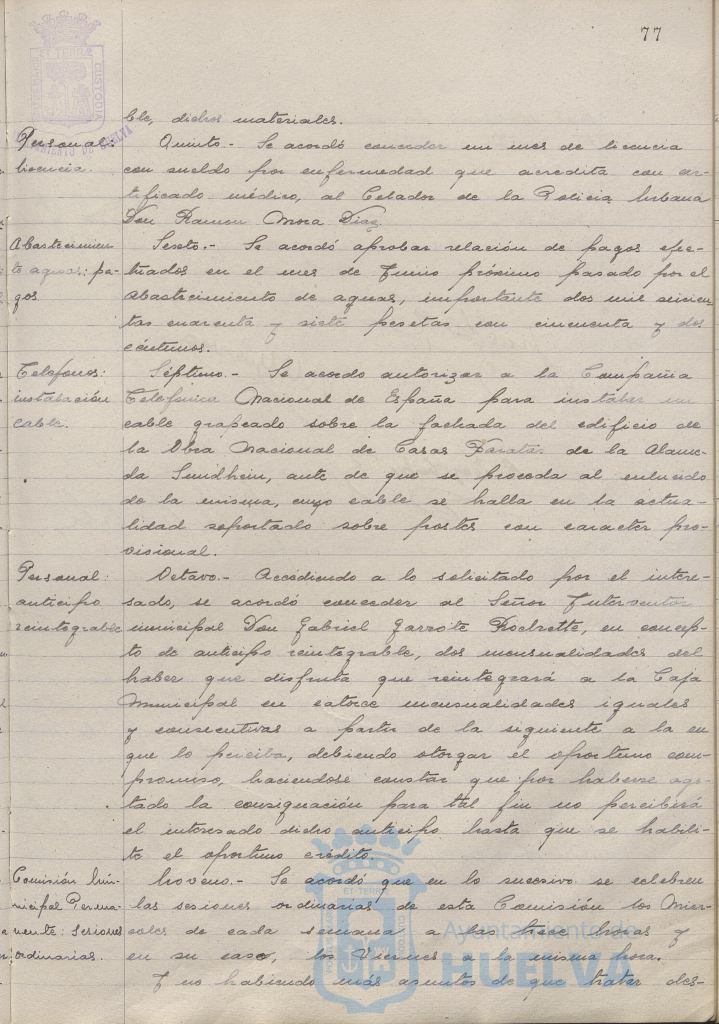 77
ble, dichos materiales.
Personal:
licencia.
Quinto.- Se acordó conceder un mes de licencia
con sueldo por enfermedad que acredita con cer-
tificado médico, al Celador de la Policia Urbana
Don Ramon Mora Diaz.
Abastecimien
to aguas: pa-
gos.
Sexto.- Se acordó aprobar relación de pagos efec-
tuados en el mes de Junio próximo pasado por el
abastecimiento de aguas, importante dos mil seiscien
tas cuarenta y siete pesetas con cincuenta y dos
céntimos.
Telefonos:
instalación
cable.
Séptimo.- Se acordo autorizar a la Compañia
Telefónica Nacional de España para instalar un
cable grapeado sobre la fachada del edificio de
la Obra Nacional de Casas Baratas de la Alame-
da Sundheim, ante de que se proceda al enlucido
de la misma, cuyo cable se halla en la actua-
lidad soportado sobre postes con caracter pro-
visional.
Personal:
anticipo
reintegrable
Octavo.- Accediendo a lo solicitado por el intere-
sado, se acordó conceder al Señor Interventor
municipal Don Gabriel Garrote Rochette, en concep-
to de anticipo reintegrable, dos mensualidades del
haber que disfruta que reintegrará a la Caja
Municipal en catorce mensualidades iguales
y consecutivas a partir de la siguiente a la en
que lo perciba, debiendo otorgar el oportuno com-
promiso, haciendose constar que por haberse ago-
tado la consignación para tal fin no percibirá
el interesado dicho anticipo hasta que se habili-
te el oportuno crédito.
Comisión Mu-
nicipal Perma-
nente: sesiones
ordinarias.
Noveno.- Se acordó que en lo sucesivo se celebren
las sesiones ordinarias de esta Comisión los Mier-
coles de cada semana a las trece horas y
en su caso, los Viernes a la misma hora.
Y no habiendo más asuntos de que tratar des-
Ayuntamiento de
HUELVA